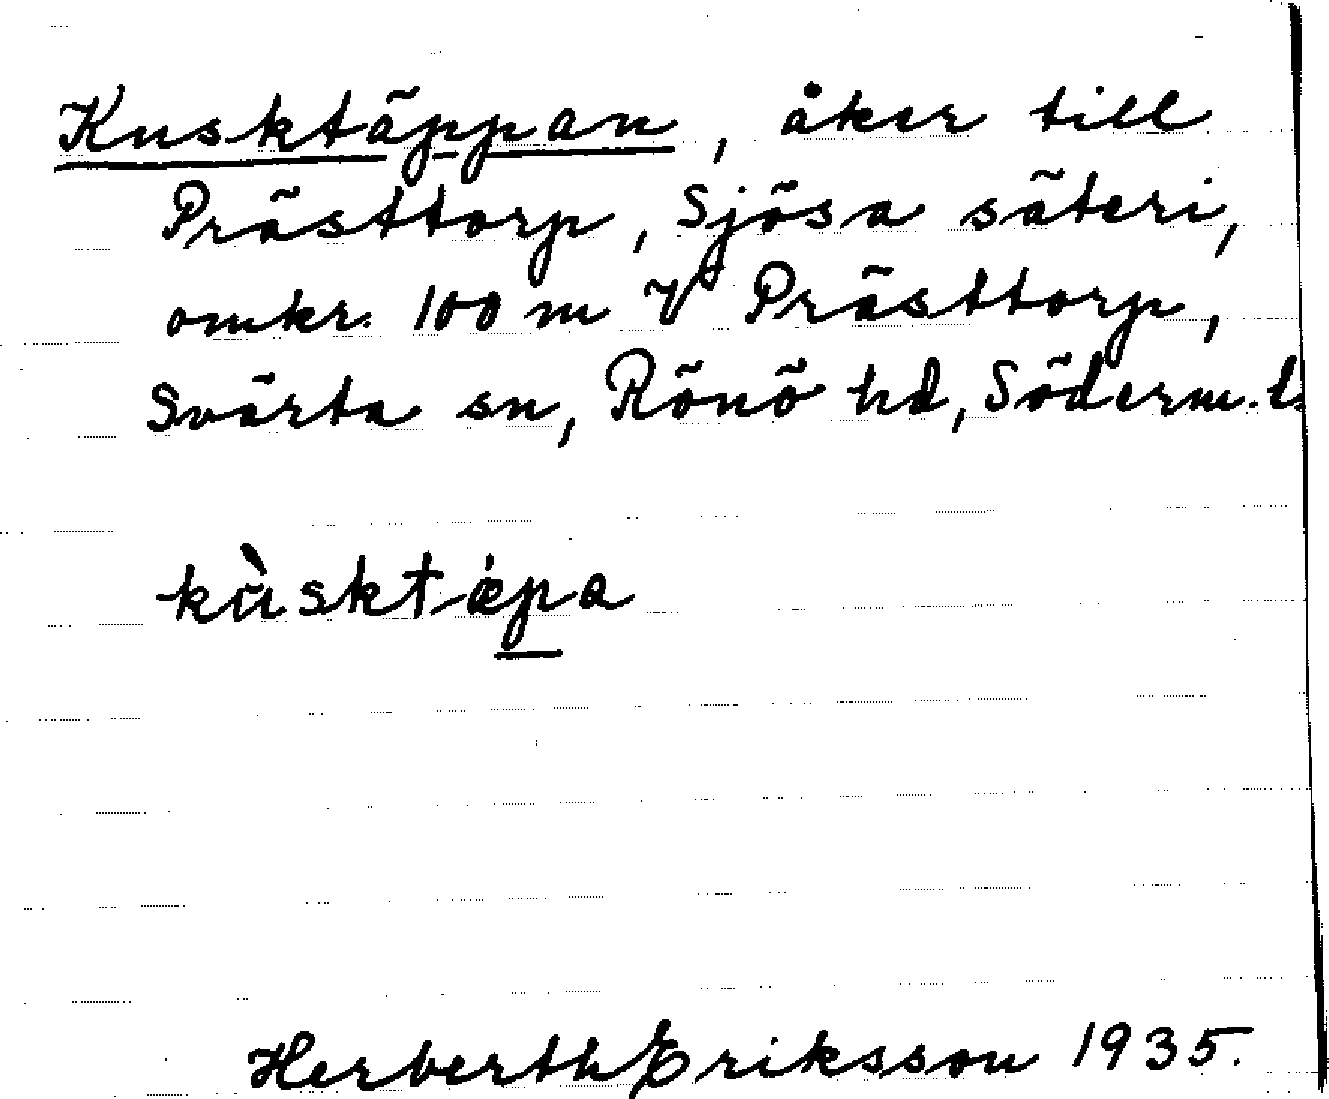 Kusktäppan, åker till
Prästtorp, Sjösa säteri,
omkr. 100 m V Prästtorp,
Svärta sn, Rönö hd, Söderm. l.
kùsktæ̍pa
Herberth Eriksson 1935.